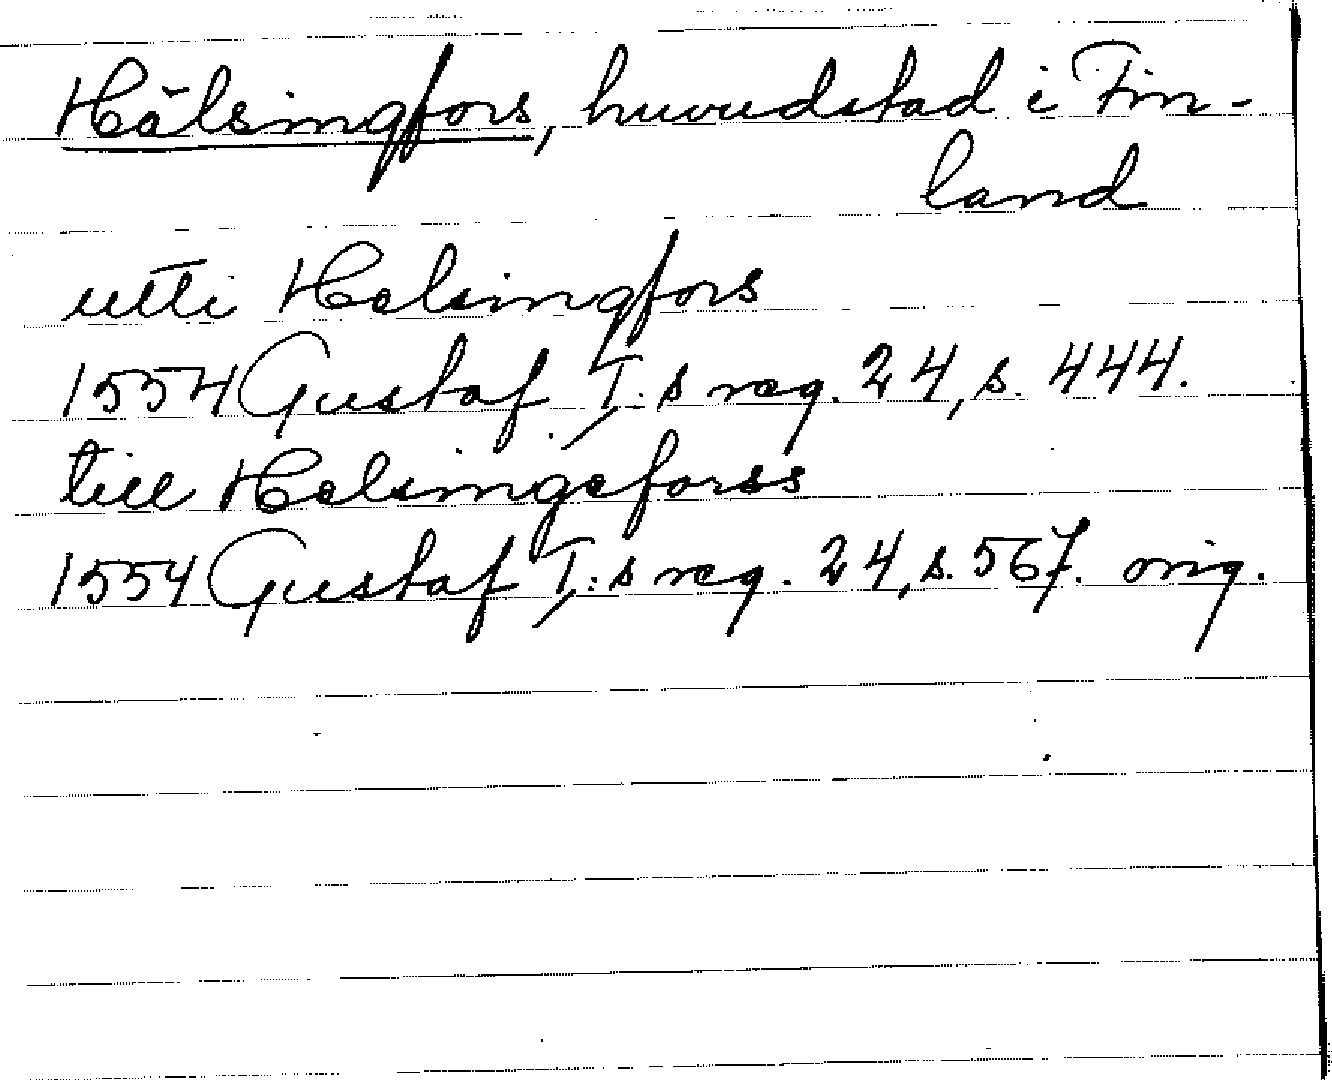 Hälsingfors, huvudstad i Fin-
land
utti Helsingfors
1554 Gustaf I:s reg. 24, s. 444.
till Helsingeforss
1554 Gustaf I:s reg. 24, s. 567. orig.